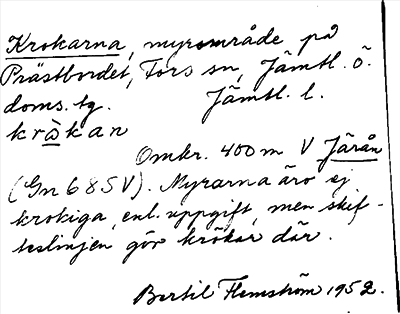 Krokarna, myrområde på
Prästbordet, Fors sn, Jämtl. ö.
doms. tg. Jämtl. l.
kràkan
Omkr. 400 m V Järån
(Gn 685V). Myrarna äro ej
krokiga, enl. uppgift, men skif-
teslinjen gör krökar där.
Bertil Flemström 1952.